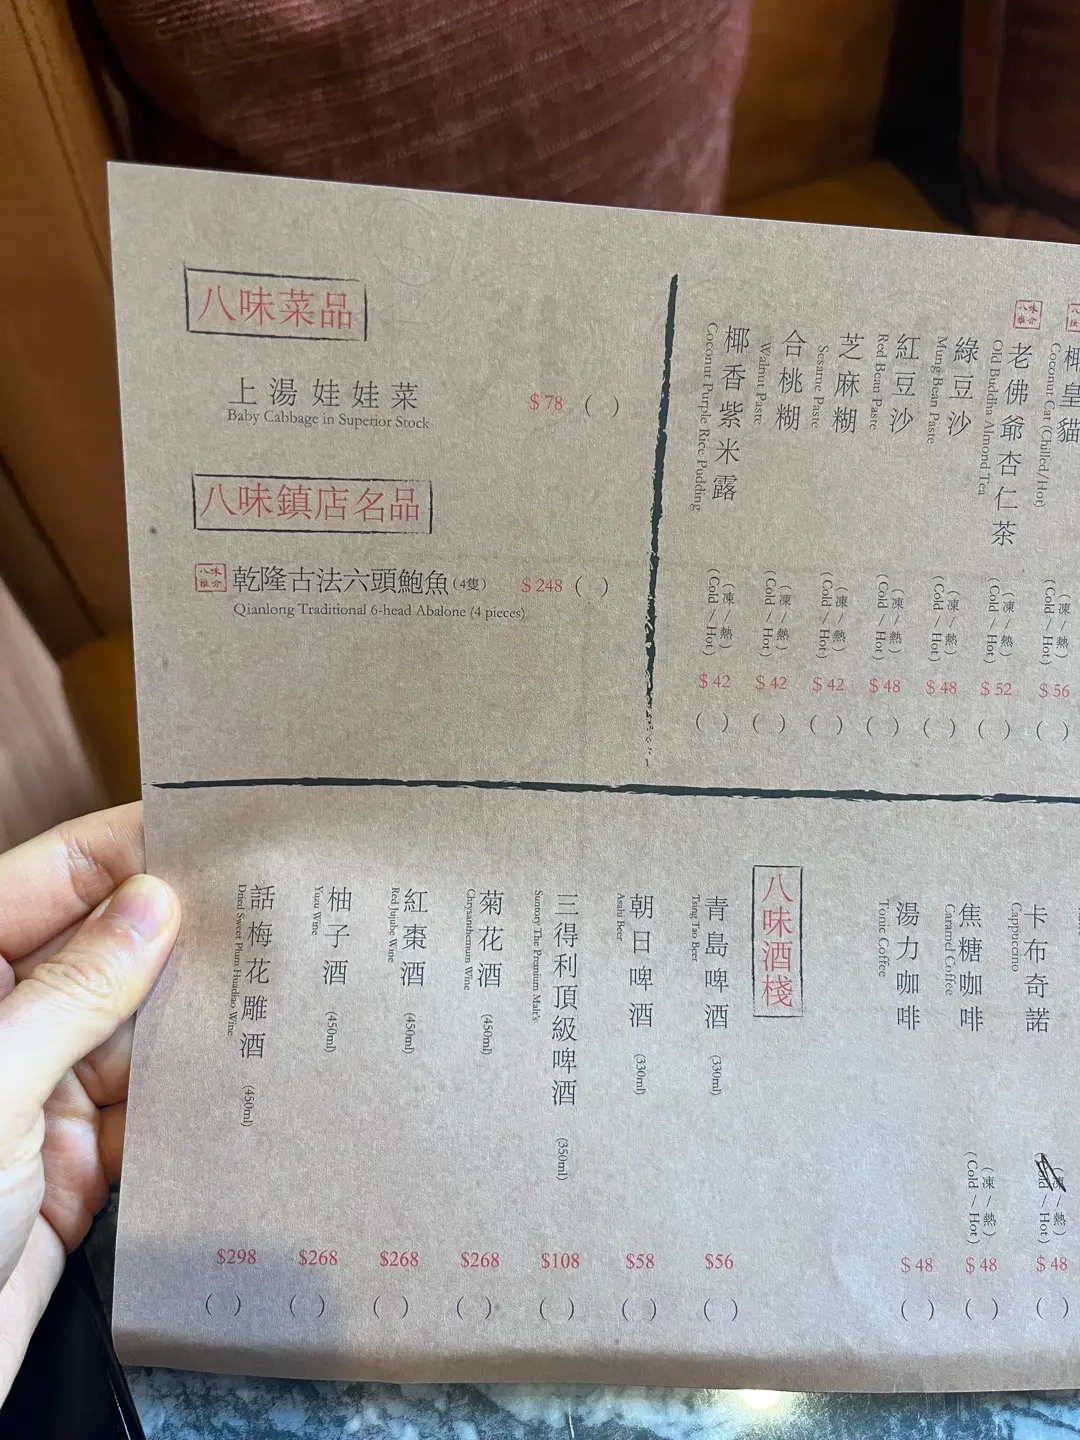 八味菜品
上湯娃娃菜
Baby Cabbage in Superior Stock
$ 78 ( )
八味鎮店名品
八味
推介
乾隆古法六頭鮑魚(4隻)
Qianlong Traditional 6-head Abalone (4 pieces)
$ 248 ( )
八味
推介
椰皇貓
Coconut Cat (Chilled/Hot)
(凍/熱)
(Cold / Hot)
$ 56
( )
八味
推介
老佛爺杏仁茶
Old Buddha Almond Tea
(凍/熱)
(Cold / Hot)
$ 52
( )
綠豆沙
Mung Bean Paste
(凍/熱)
(Cold / Hot)
$ 48
( )
紅豆沙
Red Bean Paste
(凍/熱)
(Cold / Hot)
$ 48
( )
芝麻糊
Sesame Paste
(凍/熱)
(Cold / Hot)
$ 42
( )
合桃糊
Walnut Paste
(凍/熱)
(Cold / Hot)
$ 42
( )
椰香紫米露
Coconut Purple Rice Pudding
(凍/熱)
(Cold / Hot)
$ 42
( )
卡布奇諾
Cappuccino
(凍/熱)
(Cold / Hot)
$ 48
( )
焦糖咖啡
Caramel Coffee
(凍/熱)
(Cold / Hot)
$ 48
( )
湯力咖啡
Tonic Coffee
$ 48
( )
八味酒棧
青島啤酒 (330ml)
Tsing Tao Beer
$56
( )
朝日啤酒 (330ml)
Asahi Beer
$58
( )
三得利頂級啤酒 (350ml)
Suntory The Premium Malt's
$108
( )
菊花酒 (450ml)
Chrysanthemum Wine
$268
( )
紅棗酒 (450ml)
Red Jujube Wine
$268
( )
柚子酒 (450ml)
Yuzu Wine
$268
( )
話梅花雕酒 (450ml)
Dried Sweet Plum Huadiao Wine
$298
( )